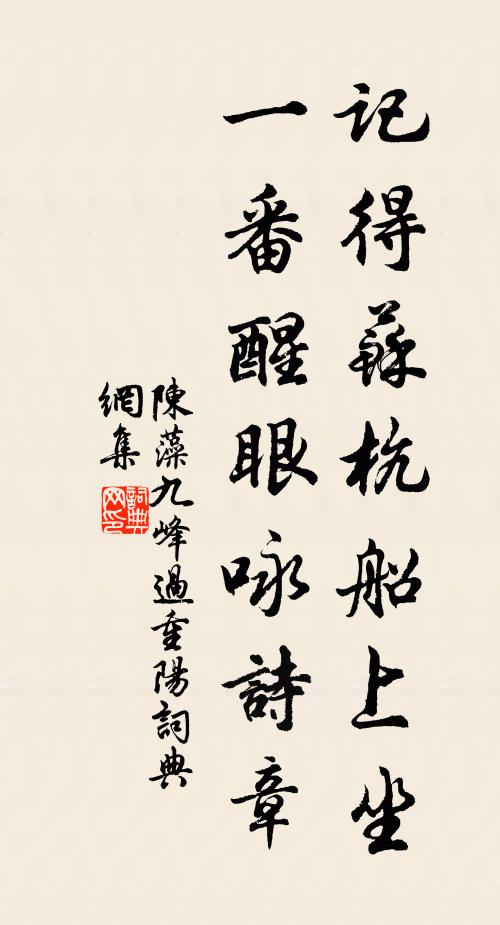 記得蘇杭船上坐
一番醒眼咏詩章
陳藻九峰過重陽詞典
網集
詞典
网印